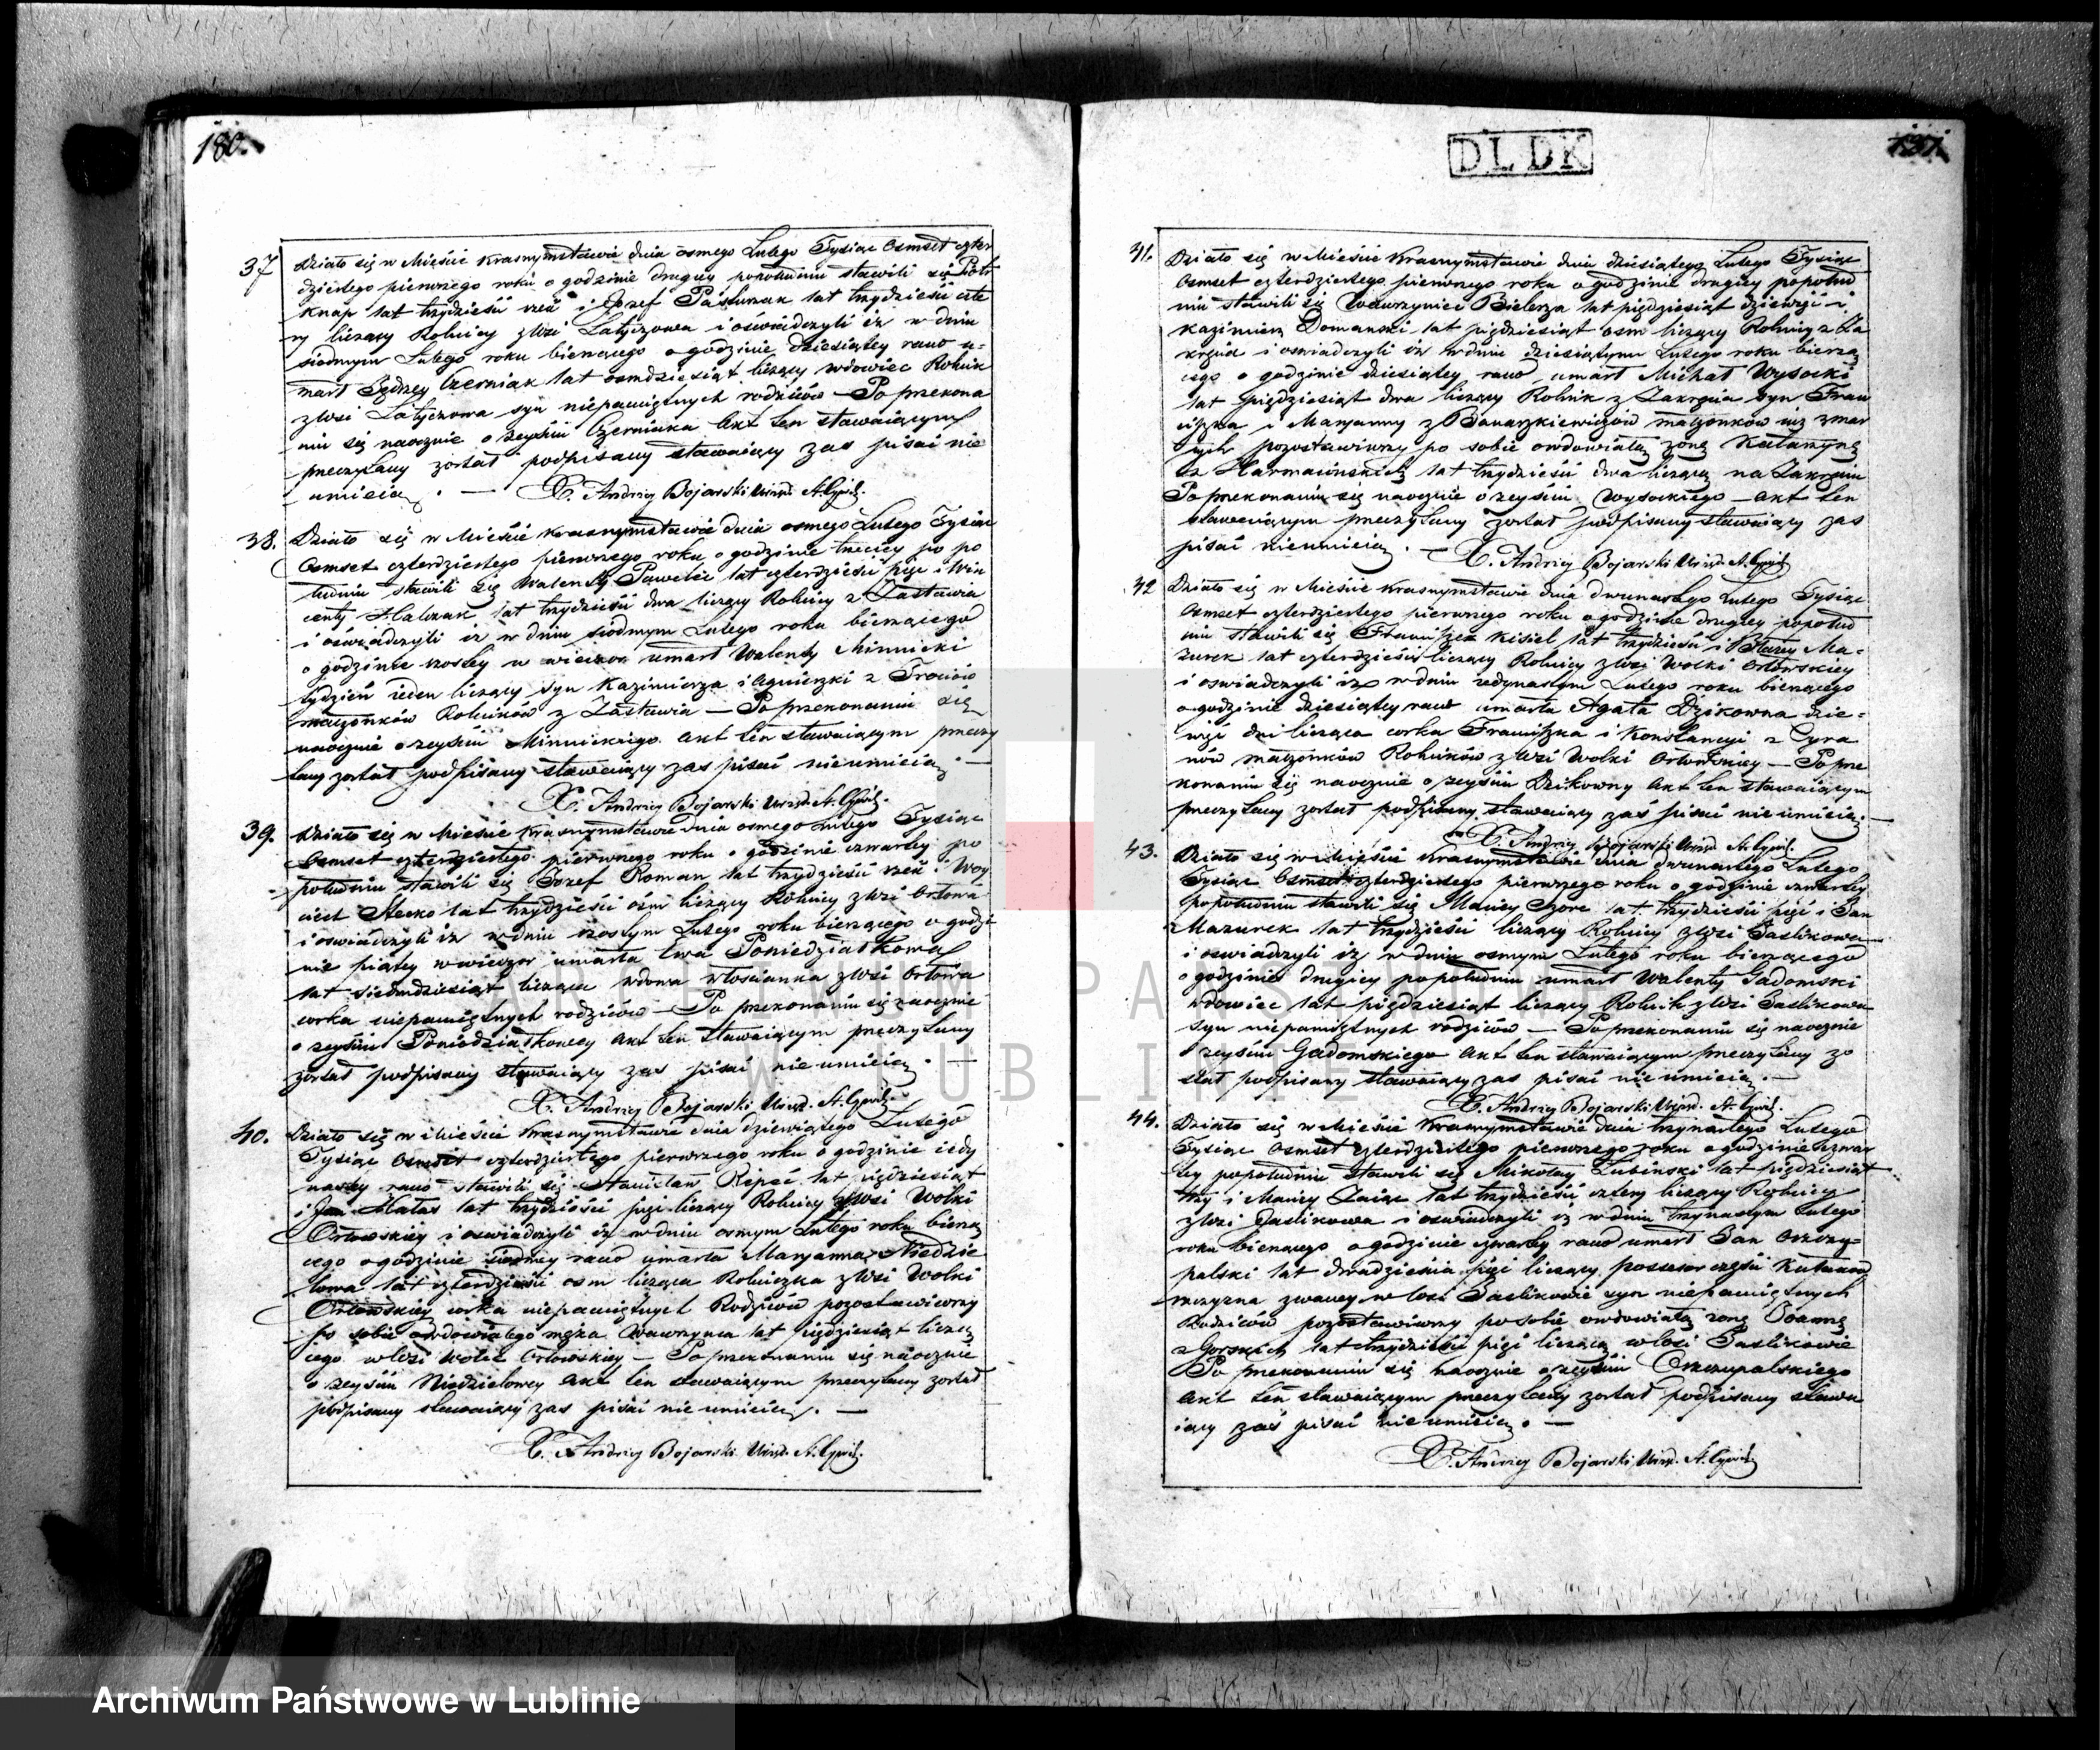 180.
37
Działo się w Mieście Krasnymstawie dnia osmego Lutego Tysiąc osmset czter
dziestego pierwszego roku o godzinie drugiey popołudniu stawili się Piotr
Knap lat trzydzieści i Jozef lat trzydzieści czte
ry liczący Rolnicy z Wsi Latyczowa i oświadczyli iż w dniu
siodmym Lutego roku bieżącego o godzinie dziesiątey rano u-
marł Jędrzey Czerniak lat osmdziesiąt liczący wdowiec Rolnik
z Wsi Latyczowa syn niepamiętnych rodziców — Po przekona
niu się naocznie o zeyściu Czerniaka Akt ten stawaiącym
przeczytany został podpisany stawaiący zas pisać nie
umieią. — X. Andrzey Bojarski Urzęd. S. Cywil.
38.
Działo się w Mieście Krasnymstawie dnia osmego Lutego Tysiąc
Osmset czterdziestego pierwszego roku o godzinie trzeciey po po
łudniu stawili się Walenty lat czterdzieści pięć i Win
centy Halczak lat trzydzieści dwa liczący Rolnicy z Zastawia
i oświadczyli iż w dniu siodmym Lutego roku bieżącego
o godzinie szostey w wieczor umarł Walenty Minnicki
tydzień ieden liczący syn Kazimierza i Agnieszki z
małżonków Rolników z Zastawia — Po przekonaniu się
naocznie o zeyściu Minnickiego Akt ten stawaiącym przeczy
tany został podpisany stawaiący zas pisać nieumieią. —
X. Andrzey Bojarski Urzęd. S. Cywil.
39.
Działo się w Mieście Krasnymstawie dnia osmego Lutego Tysiąc
Osmset czterdziestego pierwszego roku o godzinie czwartey po
południu stawili się Jozef Roman lat trzydzieści i Woy
ciech Stecko lat trzydzieści ośm liczący Rolnicy z Wsi Orłowa
i oświadczyli iż w dniu szostym Lutego roku bieżącego o godzi
nie piątey w wieczor umarła Ewa Poniedziałkowa
lat siedmdziesiąt licząca wdowa włościanka z Wsi Orłowa
corka niepamiętnych rodziców — Po przekonaniu się naocznie
o zeyściu Poniedziałkowey Akt ten stawaiącym przeczytany
został podpisany stawaiący zas pisać nieumieią. —
X. Andrzey Bojarski Urzęd. S. Cywil.
40.
Działo się w Mieście Krasnymstawie dnia dziewiątego Lutego
Tysiąc Osmset czterdziestego pierwszego roku o godzinie iedy
nastey rano stawili się Stanisław Repeć lat pięćdziesiąt
i Jan Hałas lat trzydzieści pięć liczący Rolnicy z Wsi Wolki
Orłowskiey i oświadczyli iż w dniu osmym Lutego roku bieżą
cego o godzinie siodmey rano umarła Maryanna Niedzie
lowa lat czterdzieści osm licząca Rolniczka z Wsi Wolki
Orłowskiey corka niepamiętnych Rodziców pozostawiwszy
po sobie owdowiałego męża Wawrzyńca lat pięćdziesiąt liczą
cego w Wsi Wolce Orłowskiey — Po przekonaniu się naocznie
o zeyściu Niedzielowey Akt ten stawaiącym przeczytany został
podpisany stawaiący zas pisać nieumieią. —
X. Andrzey Bojarski Urzęd. S. Cywil.
DLDK
181.
41.
Działo się w Mieście Krasnymstawie dnia dziesiątego Lutego Tysiąc
Osmset czterdziestego pierwszego roku o godzinie drugiey popołud
niu stawili się Wawrzyniec Bielerza lat pięćdziesiąt dziewięć i
Kazimierz Domański lat pięćdziesiąt osm liczący Rolnicy z Za
kręcia i oświadczyli iż w dniu dziesiątym Lutego roku bieżą
cego o godzinie dziesiątey rano umarł Michał Wysocki
lat pięćdziesiąt dwa liczący Rolnik z Zakręcia syn Fran
ciszka i Maryanny z Banaszkiewiczów małżonków iuż zmar
łych pozostawiwszy po sobie owdowiałą żonę Katarzynę
z lat trzydzieści dwa liczącą na Zakręciu
Po przekonaniu się naocznie o zeyściu Wysockiego — Akt ten
stawaiącym przeczytany został podpisany stawaiący zas
pisać nieumieią. — X. Andrzey Bojarski Urzęd. S. Cywil.
42
Działo się w Mieście Krasnymstawie dnia dwunastego Lutego Tysiąc
Osmset czterdziestego pierwszego roku o godzinie drugiey popołud
niu stawili się Franciszek Kisiel lat trzydzieści i Błażey Ma-
zurek lat czterdzieści liczący Rolnicy z Wsi Wolki Orłowskiey
i oświadczyli iż w dniu iedynastym Lutego roku bieżącego
o godzinie dziesiątey rano umarła Agata Dzikowna dzie-
więć dni licząca corka Franciszka i Konstancyi z Cyra
nów małżonków Rolników z Wsi Wolki Orłowskiey — Po prze
konaniu się naocznie o zeyściu Dzikowny Akt ten stawaiącym
przeczytany został podpisany stawaiący zaś pisać nieumieią. —
X. Andrzey Bojarski Urzęd. S. Cywil.
43.
Działo się w Mieście Krasnymstawie dnia dwunastego Lutego
Tysiąc Osmset czterdziestego pierwszego roku o godzinie czwartey
popołudniu stawili się Maciey lat trzydzieści pięć i Jan
Mazurek lat trzydzieści liczący Rolnicy z Wsi Jaslikowa
i oświadczyli iż w dniu osmym Lutego roku bieżącego
o godzinie drugiey popołudniu umarł Walenty Gadomski
wdowiec lat pięćdziesiąt liczący Rolnik z Wsi Jaslikowa
syn niepamiętnych rodziców — Po przekonaniu się naocznie
o zeyściu Gadomskiego Akt ten stawaiącym przeczytany zo
stał podpisany stawaiący zas pisać nieumieią. —
X. Andrzey Bojarski Urzęd. S. Cywil.
44.
Działo się w Mieście Krasnymstawie dnia trzynastego Lutego
Tysiąc Osmset czterdziestego pierwszego roku o godzinie czwar
tey popołudniu stawili się Mikołay Lubiński lat pięćdziesiąt
trzy i Maciey Zaiąc lat trzydzieści cztery liczący Rolnicy
z Wsi Jaslikowa i oświadczyli iż w dniu trzynastym Lutego
roku bieżącego o godzinie czwartey rano umarł Jan Orzczy-
palski lat dwadzieścia pięć liczący possesor części
zwaney w Wsi Jaslikowie syn niepamiętnych
Rodziców pozostawiwszy po sobie owdowiałą żonę Joannę
z Gorskich lat trzydzieści pięć liczącą w Wsi Jaslikowie
Po przekonaniu się naocznie o zeyściu
Akt ten stawaiącym przeczytany został podpisany stawa
iący zaś pisać nieumieią. —
X. Andrzey Bojarski Urzęd. S. Cywil.
Archiwum Państwowe w Lublinie